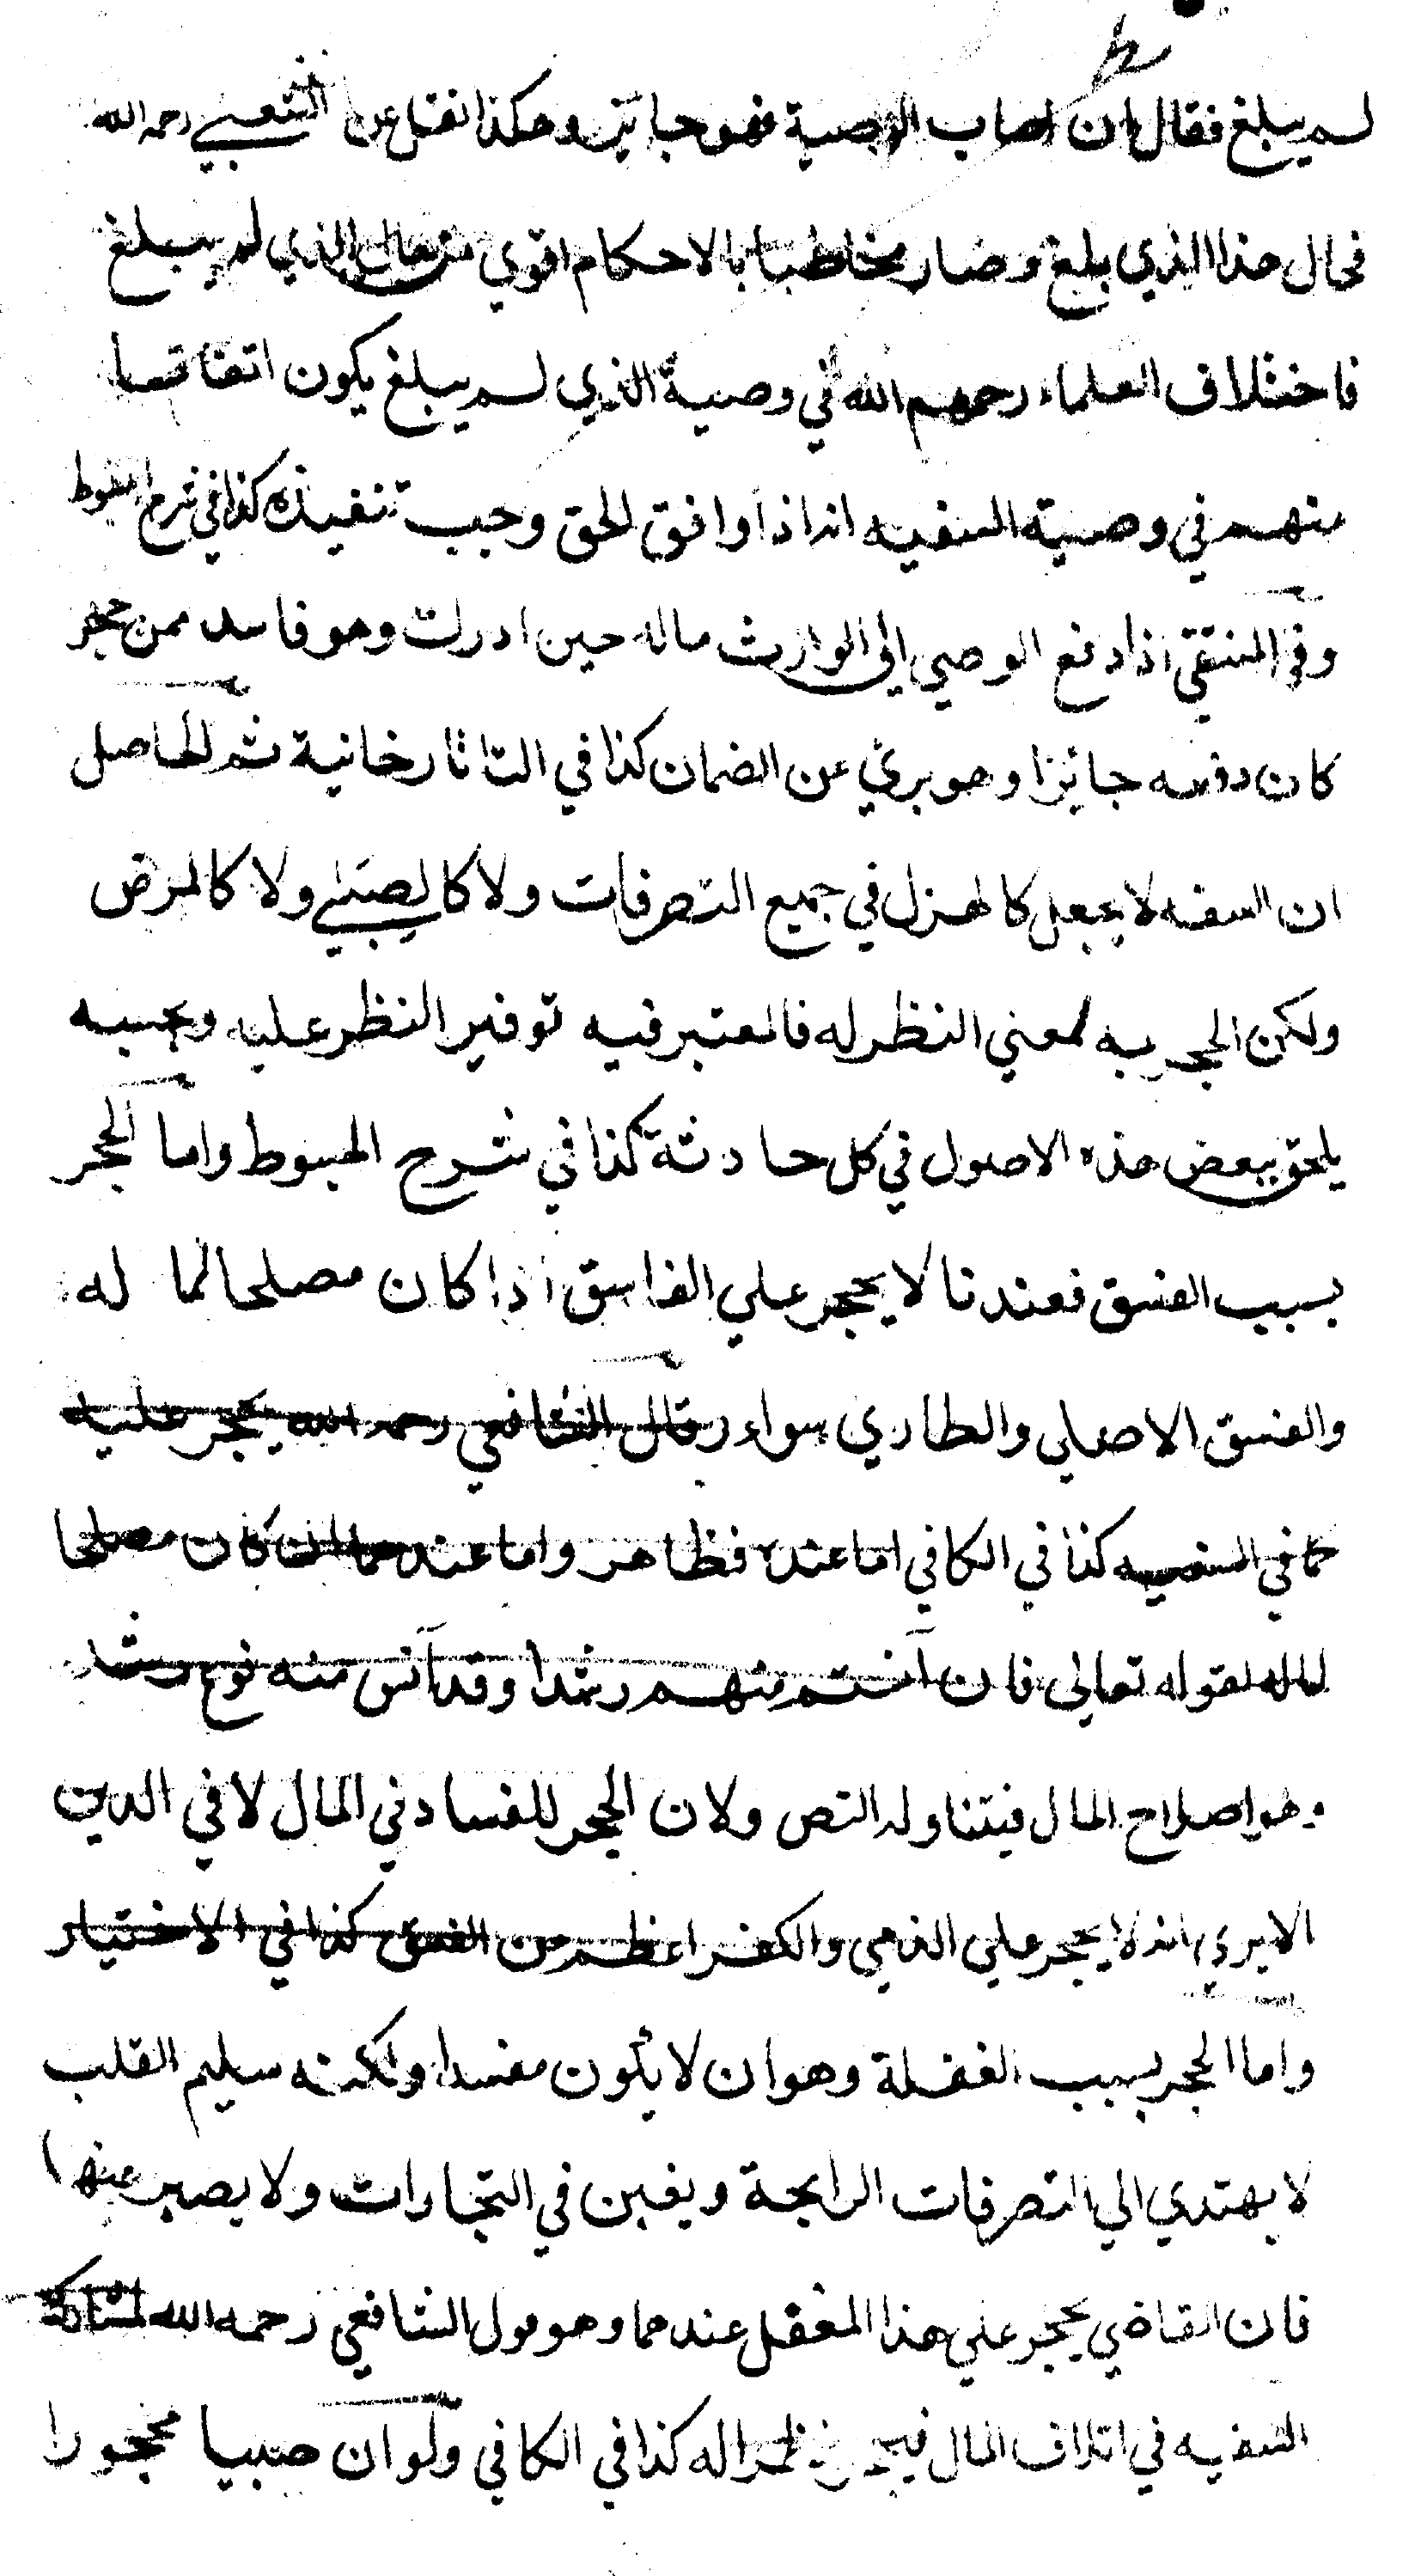 لم يبلغ فقال ان اصاب الوصية فهو جايز وهكذا نقل عن الشعبي رحمه الله
فحال هذا الذي بلغ وصار مخاطبا بالاحكام اقوي من حال الذي لم يبلغ
فاختلاف العلماء رحمهم الله في وصية الذي لم يبلغ يكون اتفاقا
منهم في وصية السفيه انه اذا وافق الحق وجب تنفيذه كذا في شرح المبسوط
وفي المنتقي اذا دفع الوصي الي الوارث ماله حين ادرك وهو فاسد ممن يحجر
كان دفعه جائزا وهو بريئ عن الضمان كذا في التاتارخانية ثم الحاصل
ان السفه لا يجعل كالهزل في جميع التصرفات ولا كالصبي ولا كالمرض
ولكن الحجر به لمعني النظر له فالمعتبر فيه توفير النظر عليه وبحسبه
يلحق ببعض هذه الاصول في كل حادثة كذا في شرح المبسوط واما الحجر
بسبب الفسق فعندنا لا يحجر علي الفاسق اذا كان مصلحا لما له
والفسق الاصلي والطاري سواء وقال الشافعي رحمه الله يحجر عليه
كما في السفيه كذا في الكافي اما عنده فظاهر واما عندهما ان كان مصلحا
لماله لقوله تعالي فان آنستم منهم رشدا وقد آنس منه نوع رشد
وهو اصلاح المال فيتناوله النص ولان الحجر للفساد في المال لا في الدين
الا يري انه لا يحجر علي الذمي والكفر اعظم من الفسق كذا في الاختيار
واما الحجر بسبب الغفلة وهو ان لا يكون مفسدا ولكنه سليم القلب
لا يهتدي الي التصرفات الرابحة ويغبن في التجارات ولا يصبر عنها
فان القاضي يحجر علي هذا المغفل عندهما وهو قول الشافعي رحمه الله لمشاركة
السفيه في اتلاف المال فيحجر نظرا له كذا في الكافي ولو ان صبيا محجورا